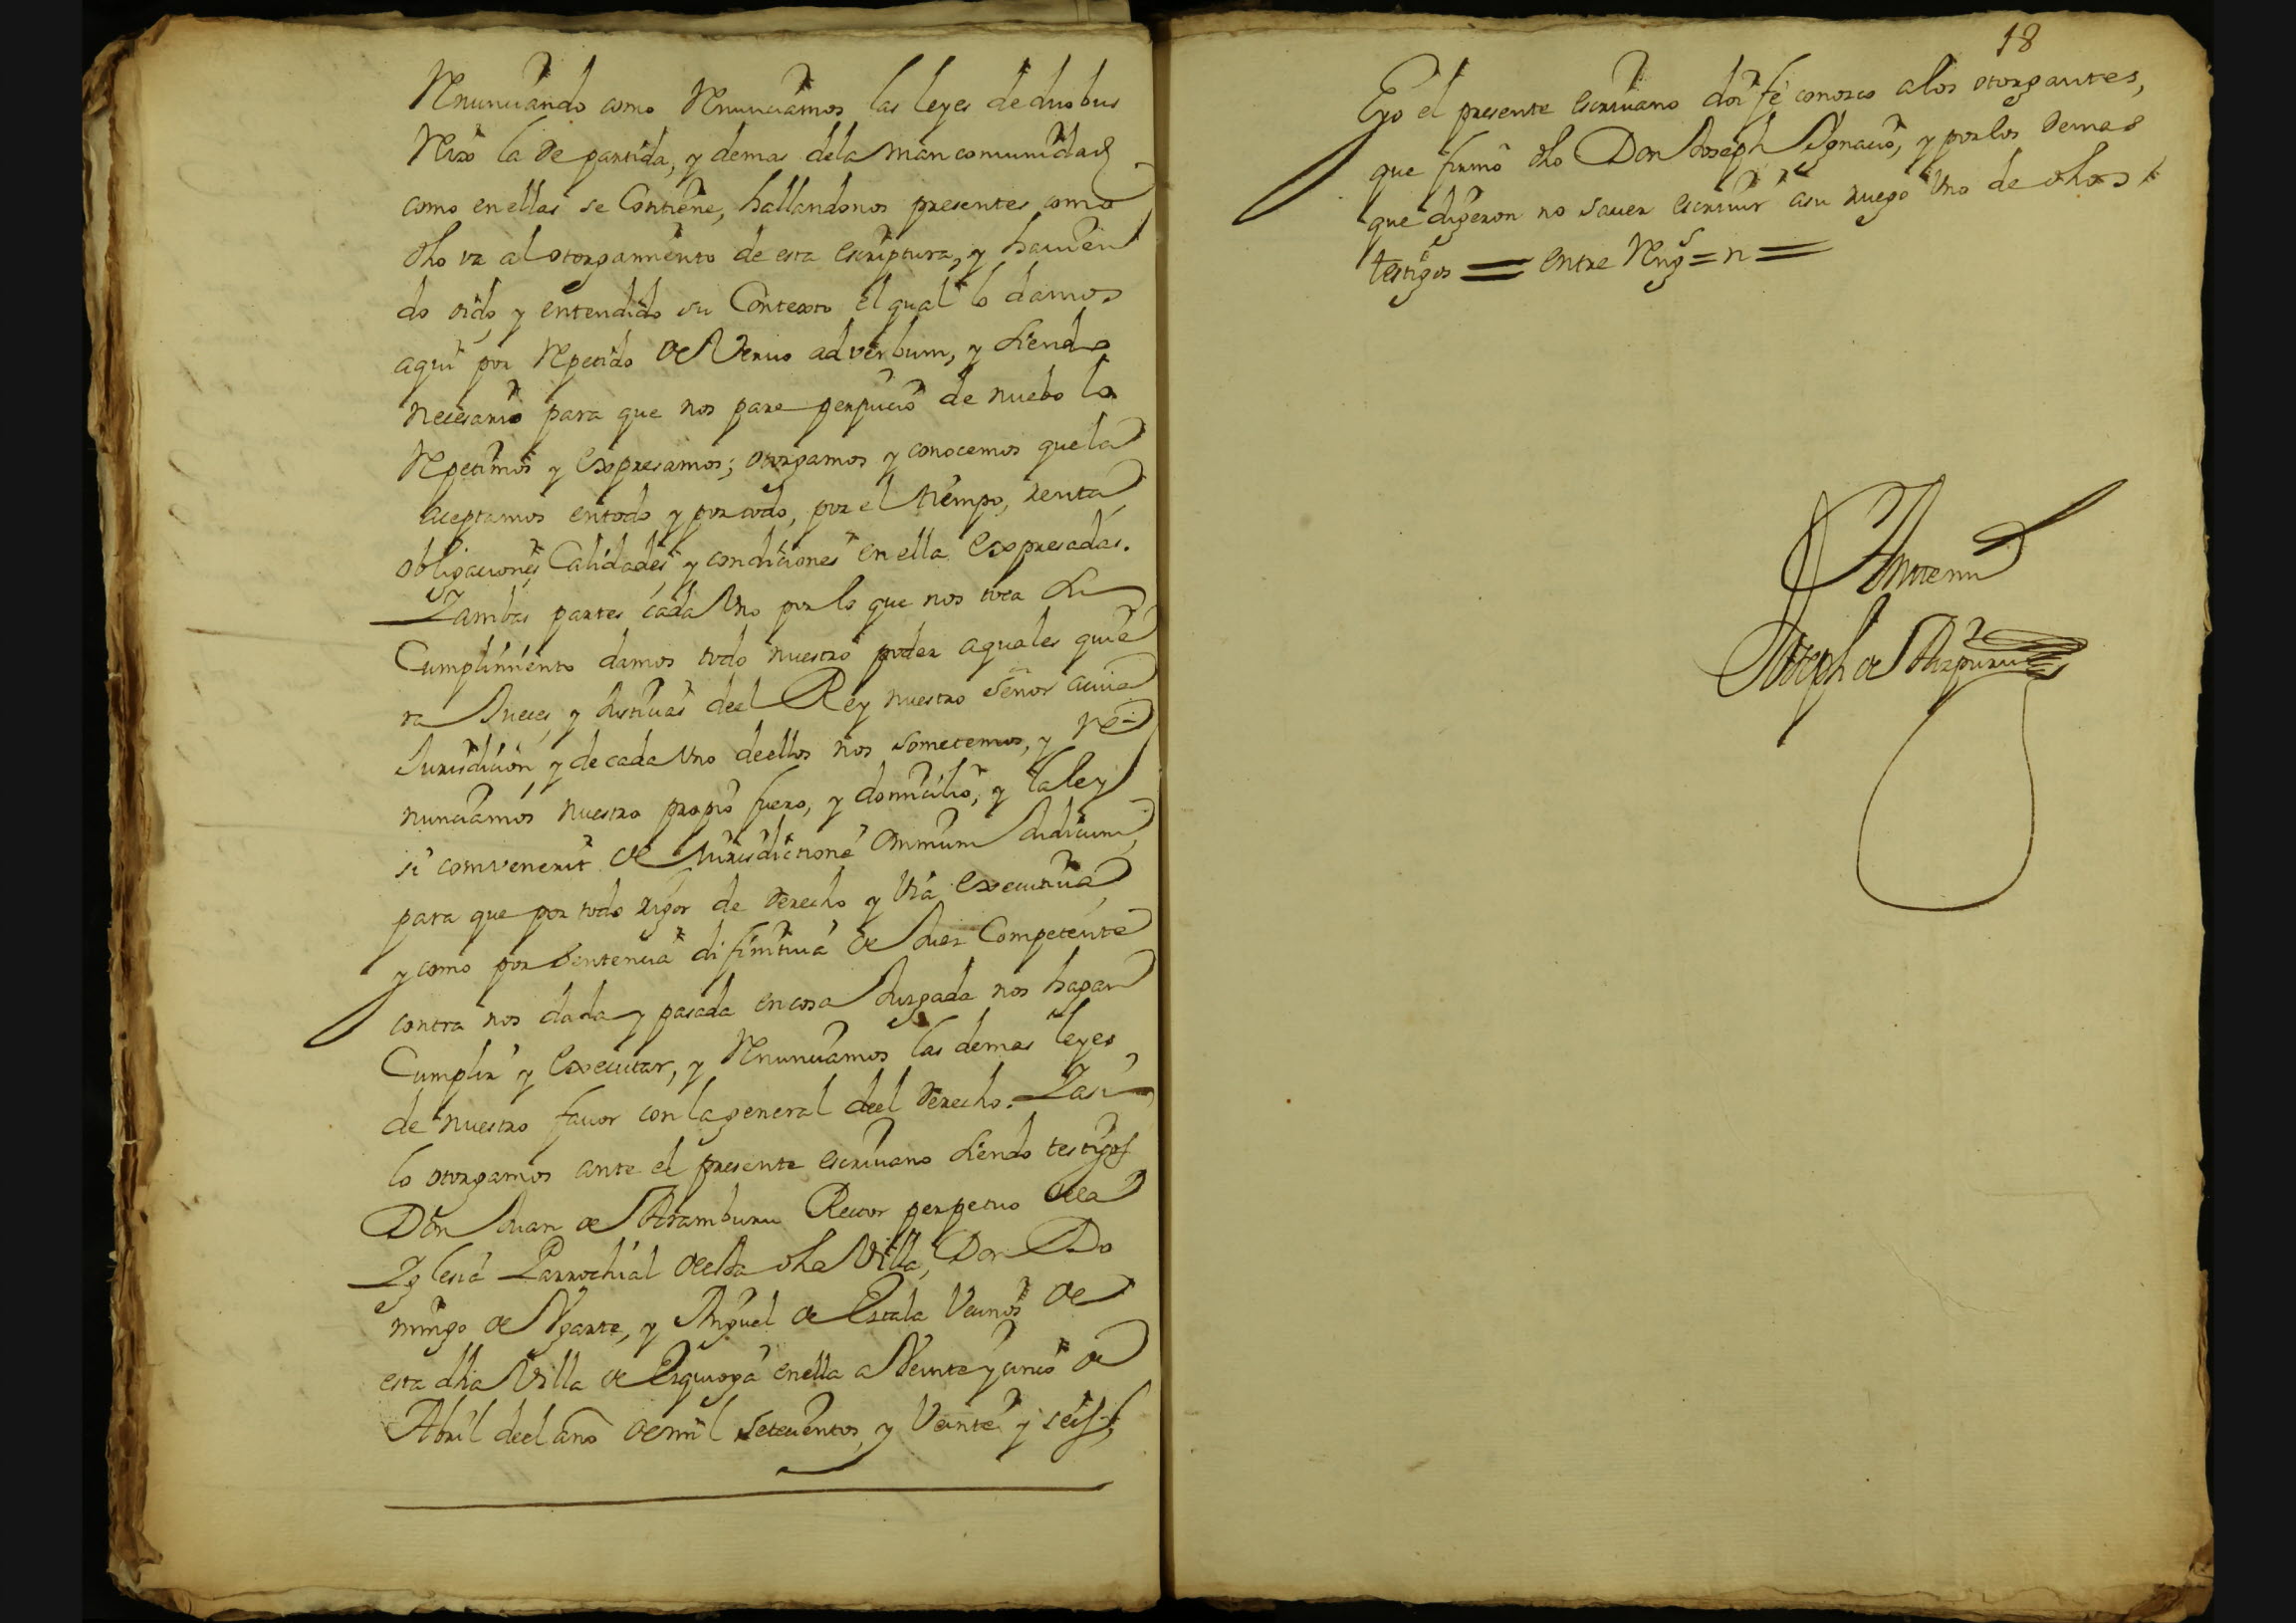 Renunciando como Renunciamos las leyes de duobus
Rex la de partida, y demas dela mancomunidad
como enellas se Contiene, hallandonos presentes como
dho va al otorgamiento de esta escriptura, y havien
do oido, y entendido su Contexto el qual lo damos
aqui por Repetido de Veruo adverbum, y siendo
necesario para que nos pare perjuicio de nuebo lo
Repetimos y Expresamos; otorgamos y conocemos que la
aceptamos entodo y portodo, por el tiempo, renta,
obligaciones, Calidades, y condiciones en ella Expresadas.
Yambas partes cada Uno por lo que nos toca su
Cumplimiento damos todo nuestro poder aquales quie
ra Jueces, y Justicias deel Rey nuestro Señor acuia
Jurisdicion y de cada Uno deellos nos sometemos, y re-
nunciamos nuestro propio fuero, y domicilio, y la ley
si comvenerit de Jurisdictione Omnium Judicum,
para que por todo rigor de derecho y Via Executiua,
y como por Sentencia difinitiua de Juez Competente
contra nos dada y pasada en cosa Juzgada nos hagan
Cumplir y Executar, y Renunciamos las demas leyes
de nuestro fauor con la general deel derecho. Yasi
lo otorgamos ante el presente escriuano siendo testigos
Don Juan de Aramburu Rector perpetuo dela
Yglesia Parrochial deesta dha Villa, Don Do
mingo de Ygarte, y Miguel de Estala Vecinos de
esta dha Villa de Ezquioga enella a Veinte y cinco de
Abril deel año de mil setecientos, y Veinte y seis,
18
Eyo el presente escriuano doi fe conosco alos otorgantes,
que firmó dho Don Joseph Ygnacio, y por los demas
que digeron no sauer escriuir asu ruego Uno de dhos
testigos = entre Reng.s = n =
Antemi
Joseph de Aizpuru